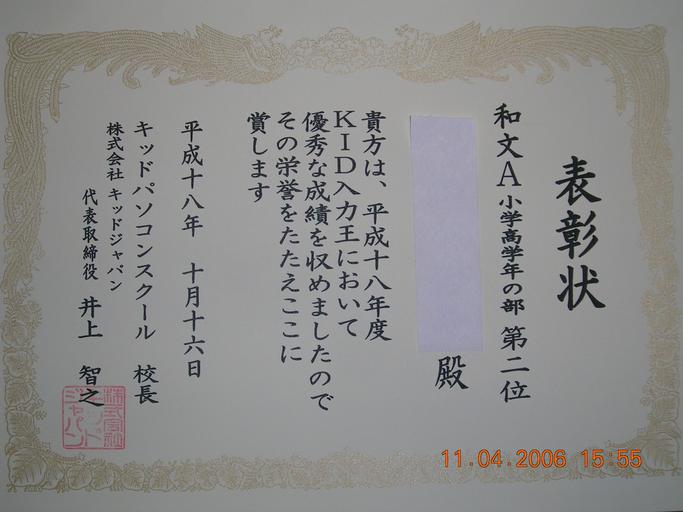 表彰状
和文A小学高学年の部 第二位
殿
貴方は、平成十八年度
KID入力王において
優秀な成績を収めましたので
その栄誉をたたえここに
賞します
平成十八年 十月十六日
キッドパソコンスクール 校長
株式会社 キッドジャパン
代表取締役 井上 智之
株式会社
キッド
ジャパン
11.04.2006 15:55